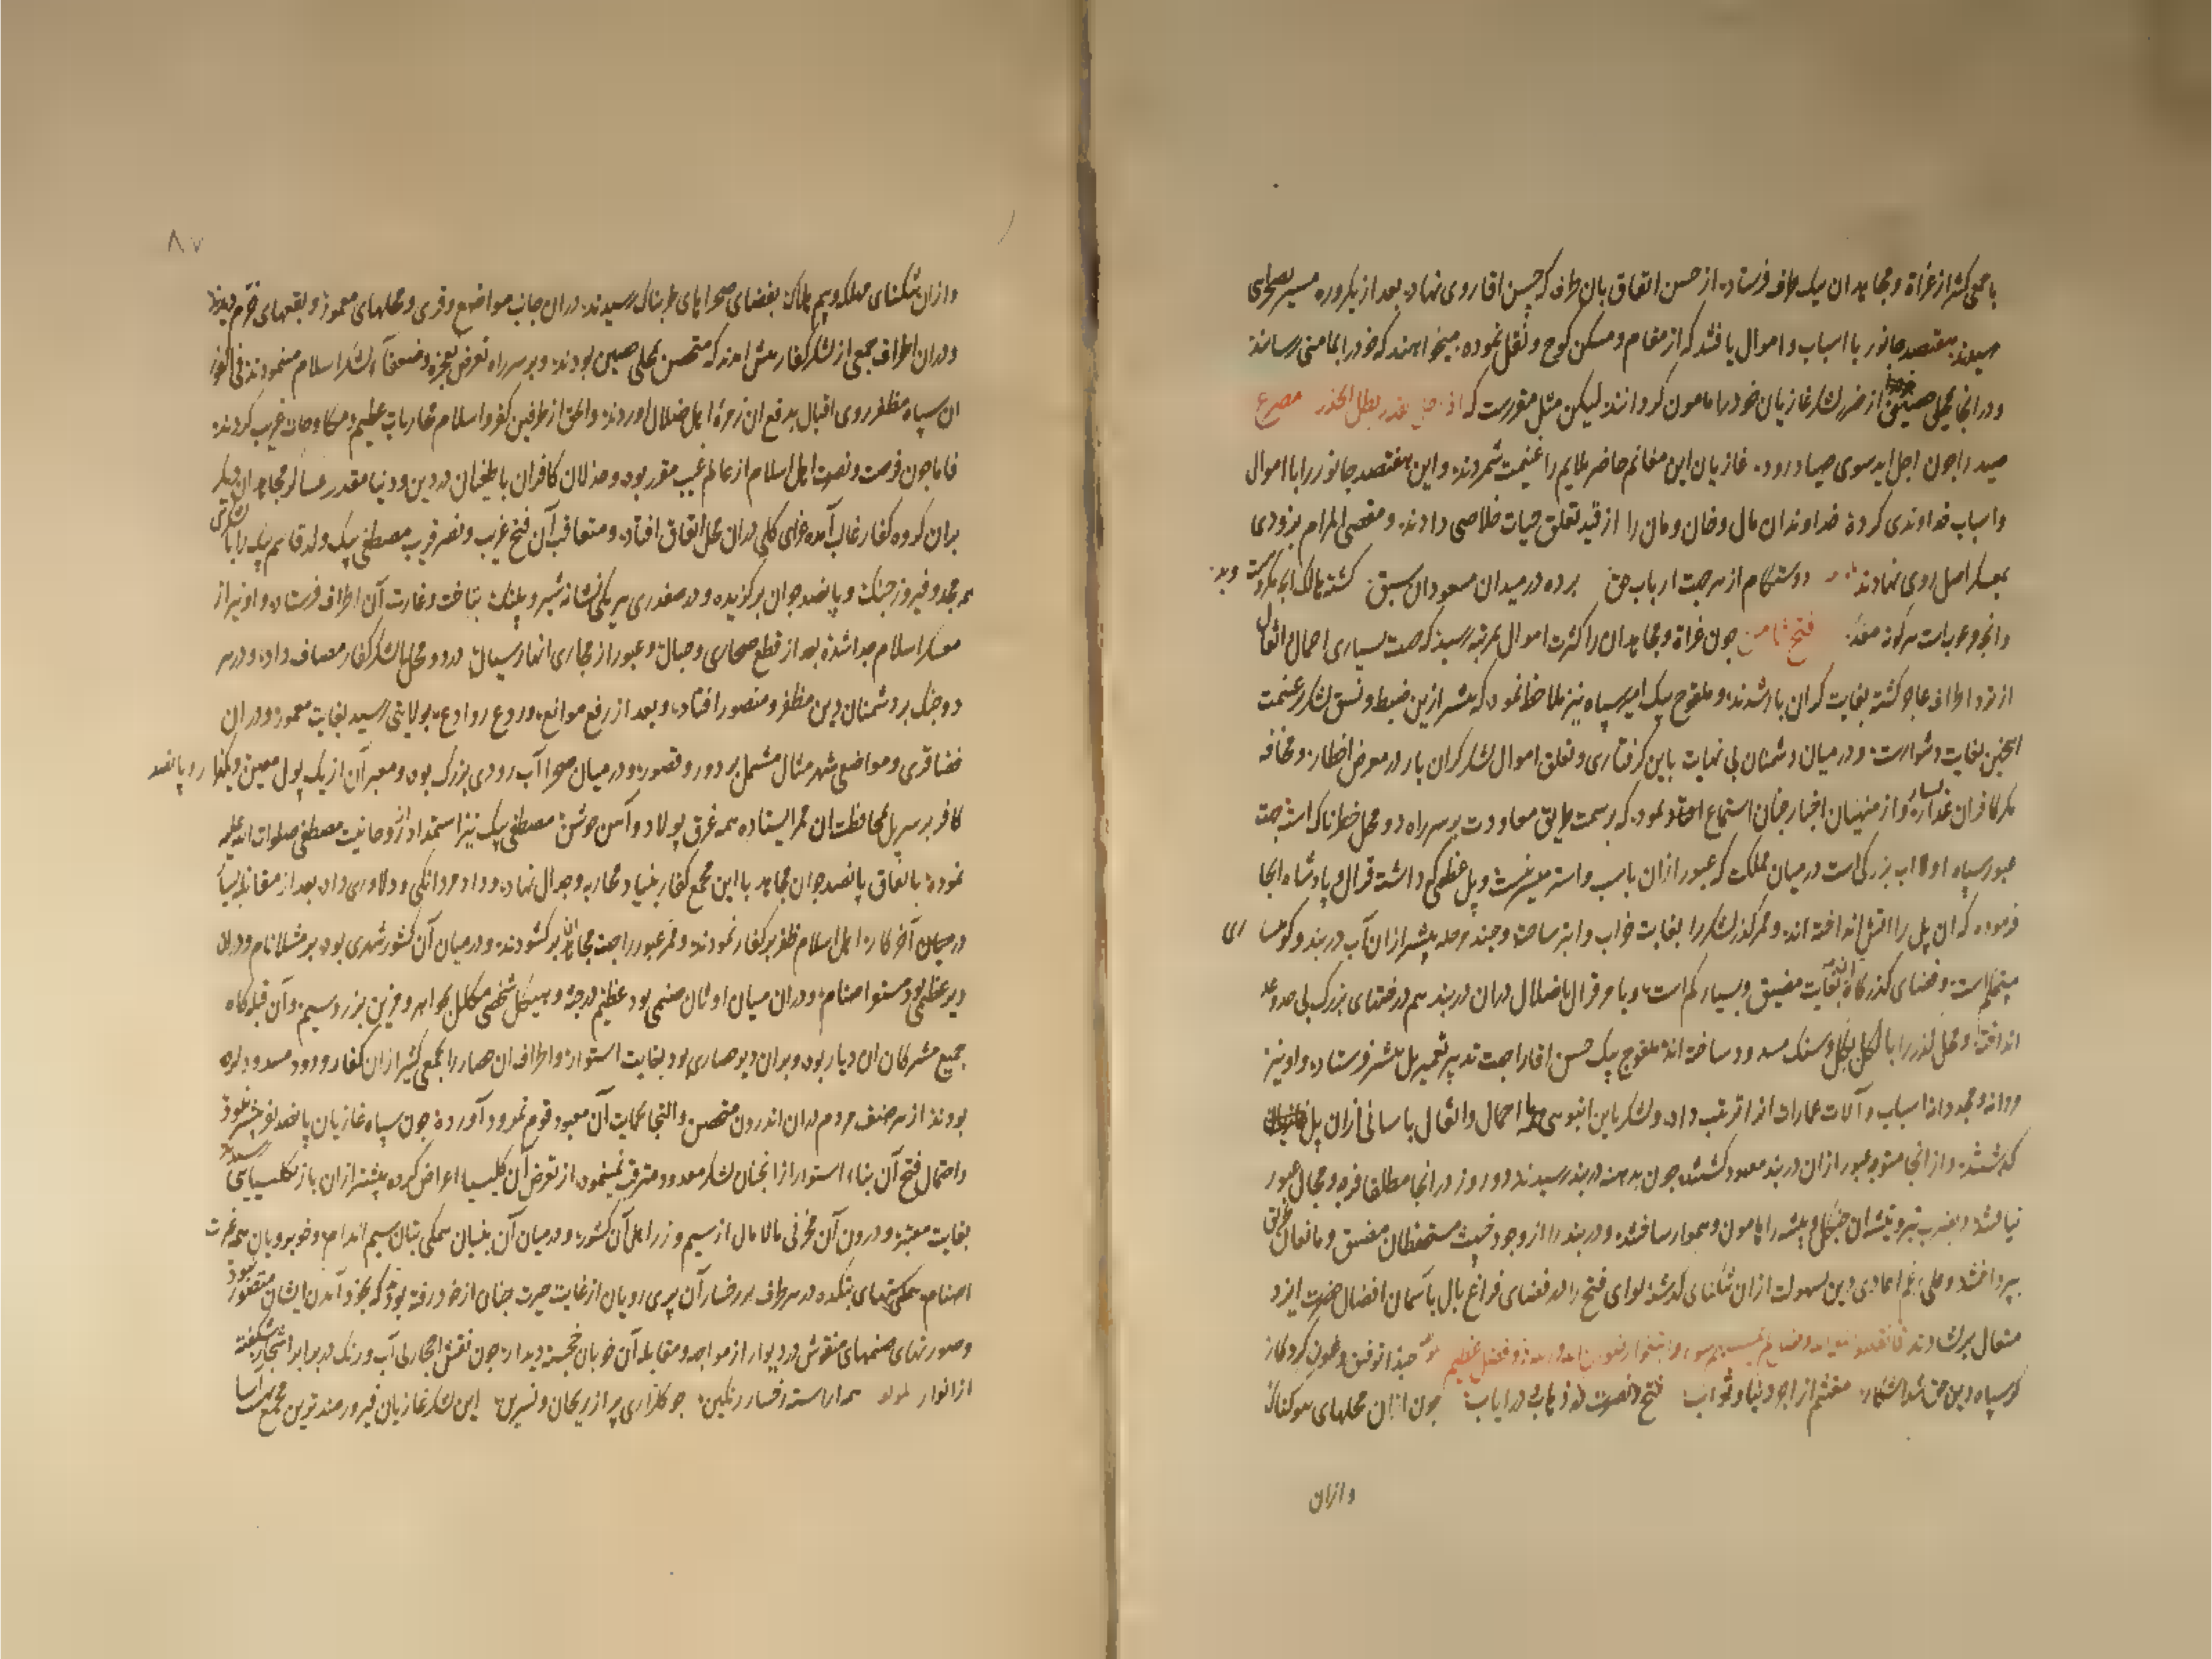 با جمعی کثیر از غزاة و مجاهدان بیک طرف فرستاد از حسن اتفاق بان طرف که حسن اقا روی نهاد بعد از یکروزه مسیر بصحرای
رسیدند هفتصد جانور با اسباب و اموال یافتند که از مقام و مسکن کوج و نقل نموده میخواهند که خود را بمامنی رسانند
و در انجا بمحلی حصین از ضرر لشکر غازیان خود را مامون کردانند لیکن مثل مقررست که اذا حل القدر بطل الحذر مصرع
صید را جون اجل اید سوی صیاد رود غازیان این مغانم حاضر ملایم را غنیمت شمردند و این هفتصد جانور را با اموال
و اسباب خداوندی کرده خداوندان مال و خان و مان را از قید تعلق حیات خلاصی دادند و مقضی المرام بزودی
بمعسکر اصل روی نهادند دوستکام از مرحمت ارباب حق برده در میدان مسعودان سبق کشته مالک
فتح ثامن جون غزاة و مجاهدان را کثرت اموال بمرتبه رسید که جهت بسیاری احمال و اثقال
از تردد اطراف عاجز کشته بغایت کران بار شدند و ملقوج بیک امیر سپاه نیز ملاحظه نمود که بیشتر ازین ضبط و نسق لشکر و غنیمت
اینجنین بغایت دشوارست و در میان دشمنان بی نهایت باین کرفتاری و تعلق اموال لشکر کران بار در معرض اخطار و مخافه
مکر کافران غدارند و از منهیان اخبار جنان استماع نمود که بر سمت طریق معاودت بر سر راه دو محل خطرناک است جهت
عبور سپاه اولا اب بزرکی است در میان مملکت که عبور از ان باسب و استر میسر نیست و پل عظیمی که داشت قرال و پادشاه انجا
فرموده که ان پل را اتش انداخته اند و ممر کذر لشکر را بغایت خراب و ابتر ساخته و جند مرحله پیشتر از ان آب دربند و کوهسا ری
مستحکم است و فضای کذرکاه بغایت مضیق و بسیار کم است و بامر قرال با ضلال دران دربند هم درختهای بزرک بی حد و عد
انداخته و محل کذر را با کل و سنک مسدود ساخته اند ملقوج بیک حسن اقا را جهت تدبیر تعمیر پل پیشتر فرستاد و او نیز
اسباب و آلات عمارات انرا ترتیب داد و لشکر باین انبوهی با احمال و اثقال باسانی از ان پل
کذشتند و از انجا متوجه عبور از ان دربند معهود کشتند جون بدهنه دربند رسیدند دو روز در انجا مطلقا فرجه و مجال عبور
نیافتند و بضرب تبر و تیشه ان جنکل و بیشه را هامون و هموار ساختند و دربند را از وجود خبیث مستحفظان مضیق و مانعان طریق
بپرداختند و علی رغم اعادی دین بسهولت از ان تنکنای کذشتند لوای فتح را در فضای فراغ بال بآسمان افضال حضرت ایزد
متعال برکشادند فانقلبوا بنعمة من الله و فضل لم یمسسهم سوء و اتبعوا رضوان الله و الله ذو فضل عظیم حبذا توفیق و عون کردکار
کو سپاه دین حق شد اشکار مغتنم از اجر دنیا و ثواب فتح و نصرت در ذهاب و در ایاب جون از ان محلهای هولناک
و ازان
۸۷
و ازان تنکنای مهلک و بیم هلاک بفضای صحراهای طربناک رسیدند دران جانب مواضع و قری و محلهای معمور و بقعهای خرم دیدند
و دران اطراف جمعی از لشکر کفار پیش امدند که متحصن بمحلی حصین بودند و بر سر راه تعرض بعجزه و ضعفاء لشکر اسلام مینمودند فی الفور
ان سپاه مظفر روی اقبال بدفع ان زمره اهل ضلال اوردند و الحق از طرفین کفر و اسلام محاربات عظیم و مکاوحات غریب کردند
فاما جون فرصت و نصرت اهل اسلام از عالم غیب مقرر بود و خذلان کافران با طغیان در دین و دنیا مقدر عساکر مجاهدان دیکر
بران کروه کفار غالب آمده غزای کلی دران محل اتفاق افتاد و متعاقب آن فتح غریب و نصر قریب مصطفی بیک ولد قاسم بیک را با لشکری
همه مجد و فیروز جنک و پانصد جوان برکزیده و در صفدری هر یکی نشانه شیر و پلنک بتاخت و غارت آن اطراف فرستاد و او نیز از
معسکر اسلام جدا شده بعد از قطع صحاری و جبال و عبور از مجاری انهار سیال در دو محل با لشکر کفار مصاف داد و در هر
دو جنک بر دشمنان دین مظفر و منصور افتاد و بعد از رفع موانع و ردع روادع بولایتی رسید بغایت معمور و دران
فضا قری و مواضعی شهر مثال مشتمل بر دور و قصور و در میان صحرا آب رودی بزرک بود و معبر آن از یک پول معین و یکهزار و پانصد
کافر بر سر پل بمحافظت ان ممر ایستاده همه غرق پولاد و آهن جوشن مصطفی بیک نیز استمداد از روحانیت مصطفی صلوات الله علیه
نموده باتفاق پانصد جوان مجاهد با این مجمع کفار بنیاد محاربه و جدال نهاد و داد مردانکی و دلاوری داد بعد از مقاتله بسیار
در میان آخر کار اهل اسلام ظفر بر کفار نمودند و ممر عبور را جهت مجاهدان برکشودند و در میان آن کشور شهری بود بر مشلا نام و دران
دیر عظیم بود مستوا صنام و دران میان اوثان صنمی بود عظیم درجه و هیکل شخصی مکلل بجواهر و مزین بزر و سیم و آن قبله کاه
جمیع مشرکان ان دیار بود و بران دیر حصاری بود بغایت استوار و اطراف ان حصار را بجمعی کثیر از ان کفار
بودند از هر صنف مردم دران اندرون متحصن و التجا بحمایت آن معبود قوم نمرود آورده جون سپاه غازیان پانصد نفر بیشتر نبود
و احتمال فتح آن بناء استوار از انجنان لشکر معدود مترقب نمینمود از تعرض آن کلیسا اعراض کرده پیشتر از ان باز بکلیسایی
بغایت معتبر و درون آن مخزنی مالامال از سیم و زر اهل آن کشور و در میان آن بنیان همکی بتان سیم اندام و خوبرویان همه غیرت
اصنام همکی بتهای بتکده در هر طرف بر رخسار آن پری رویان از غایت حیرت جنان از خود رفته بود که بخود آمدن ایشان متصور نبود
و صورتهای صنمهای منقوش در دیوار از مواجهه و مقابله آن خوبان خجسته دیدار جون نقش احجار بی آب و رنک در برابر اشجار شکفته
از انوار همه اراسته رخسار رنکین جو کلزاری پر از ریحان و نسرین این لشکر غازیان فیروزمند ترین مجمع